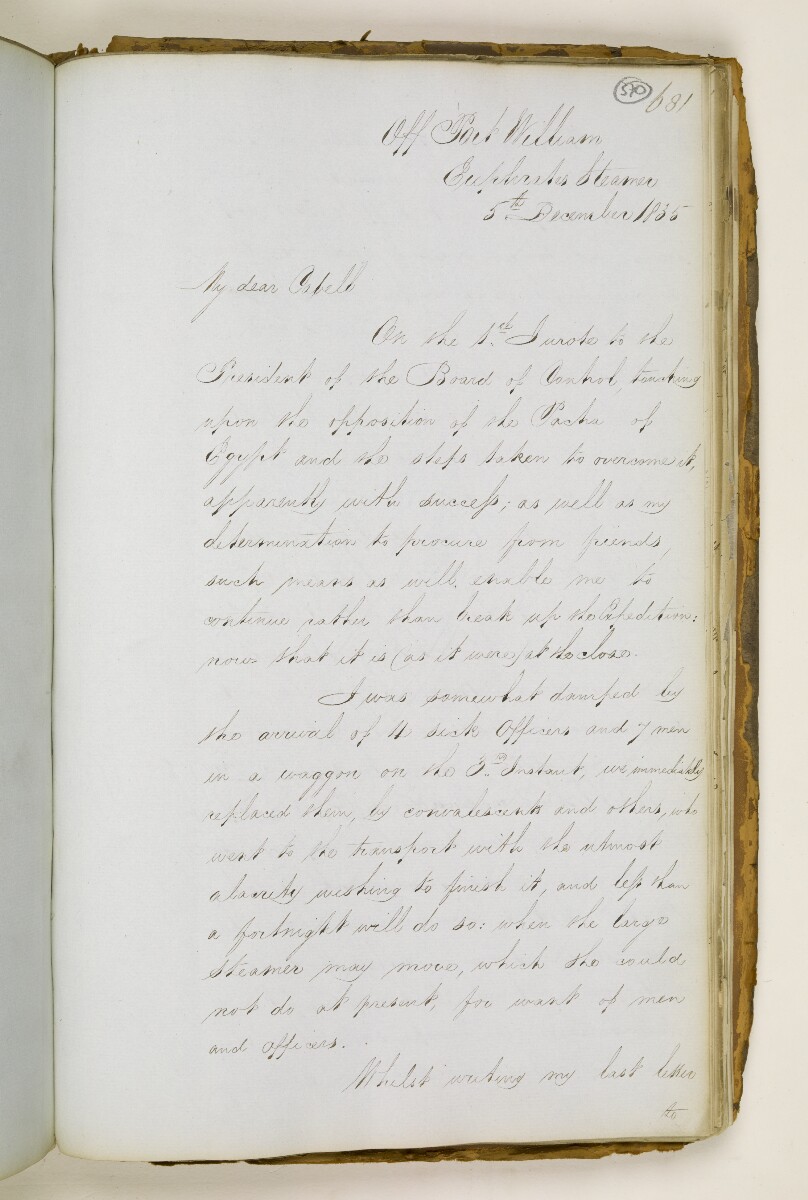 570 681
Off Port William
Euphrates Steamer
5th December 1835
My dear Cabell
On the 1st I wrote to the
President of the Board of Control, touching
upon the opposition of the Pacha of
Egypt and the steps taken to overcome it,
apparently with success; as well as my
determination to procure from friends,
such means as will enable me to
continue rather than break up the Expedition:
now that it is (as it were) at the close.
I was somewhat damped by
the arrival of 4 sick Officers and 7 men
in a waggon on the 3rd Instant, we immediately
replaced them, by convalescents and others, who
went to the transport with the utmost
alacrity wishing to finish it, and less than
a fortnight will do so: when the large
Steamer may move, which she could
not do at present, for want of men
and officers.
Whilst writing my last letter
to